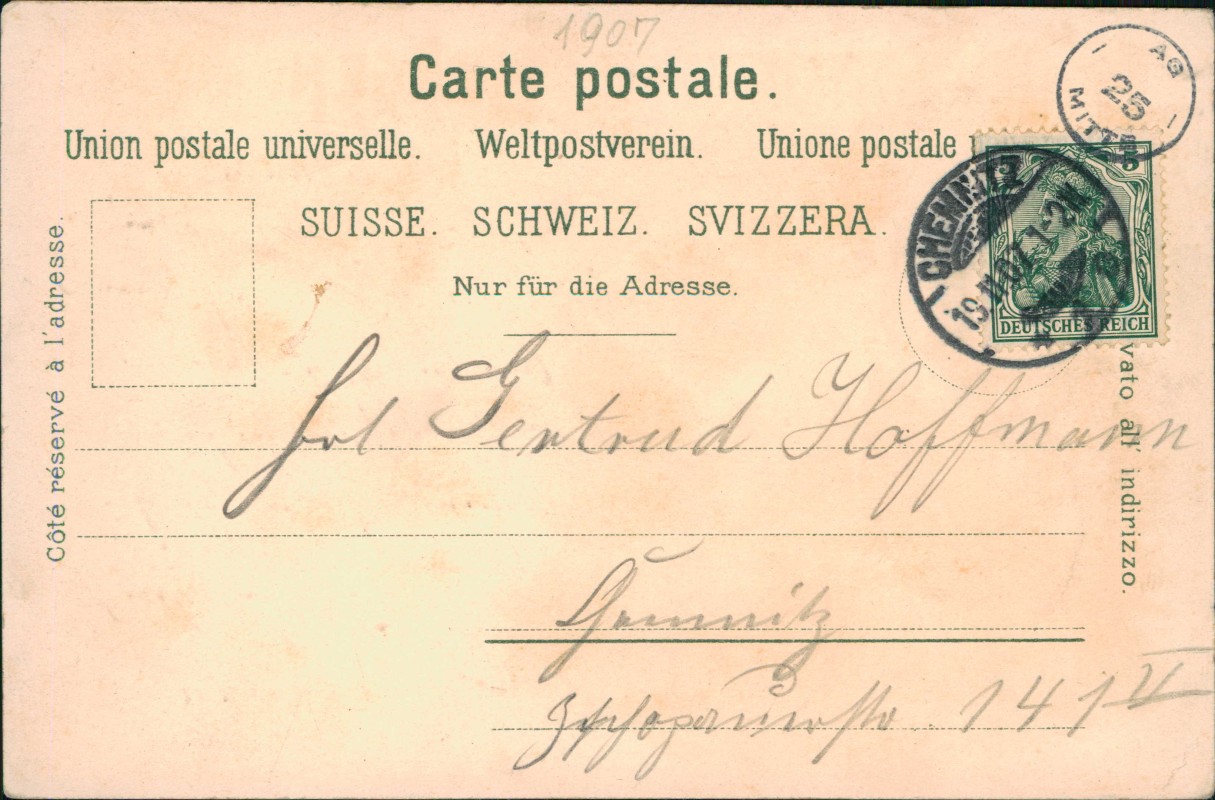 1907
Carte postale.
Union postale universelle. Weltpostverein. Unione postale
SUISSE. SCHWEIZ. SVIZZERA.
Nur für die Adresse.
Côté réservé à l'adresse.
vato all' indirizzo.
AG
25
MITTE
5
DEUTSCHES REICH
CHEMNITZ
19.11.07.1-2N
Frl Gertrud Hoffmann
Chemnitz
Zschopauerstr. 141 II